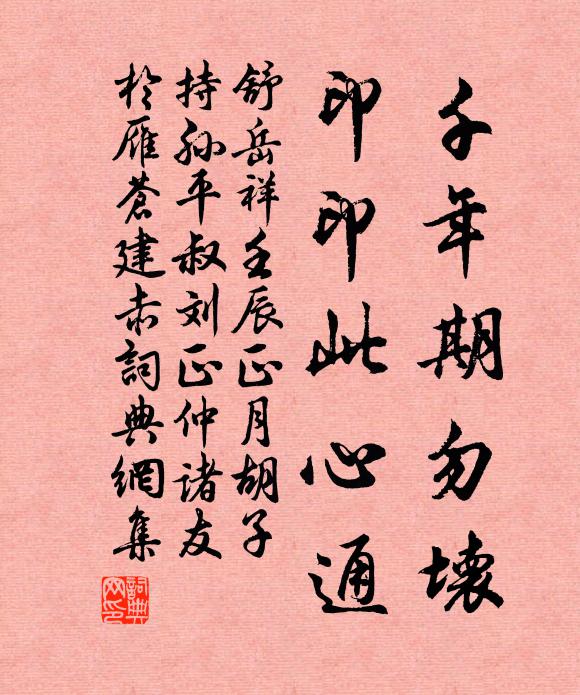 千年期勿壞
印印此心通
舒岳祥壬辰正月胡子
持孙平叔刘正仲诸友
於雁蒼建赤詞典網集
詞典
网印